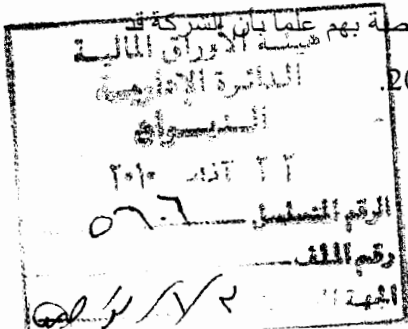 صلة بهم علما بأن الشركة قد
هيئة الأوراق المالية
الدائرة الإدارية
20.
الديوان
٢٢ آذار ٢٠١٠
الرقم المتسلسل ٥٦٠٦
رقم الملف
الجهة